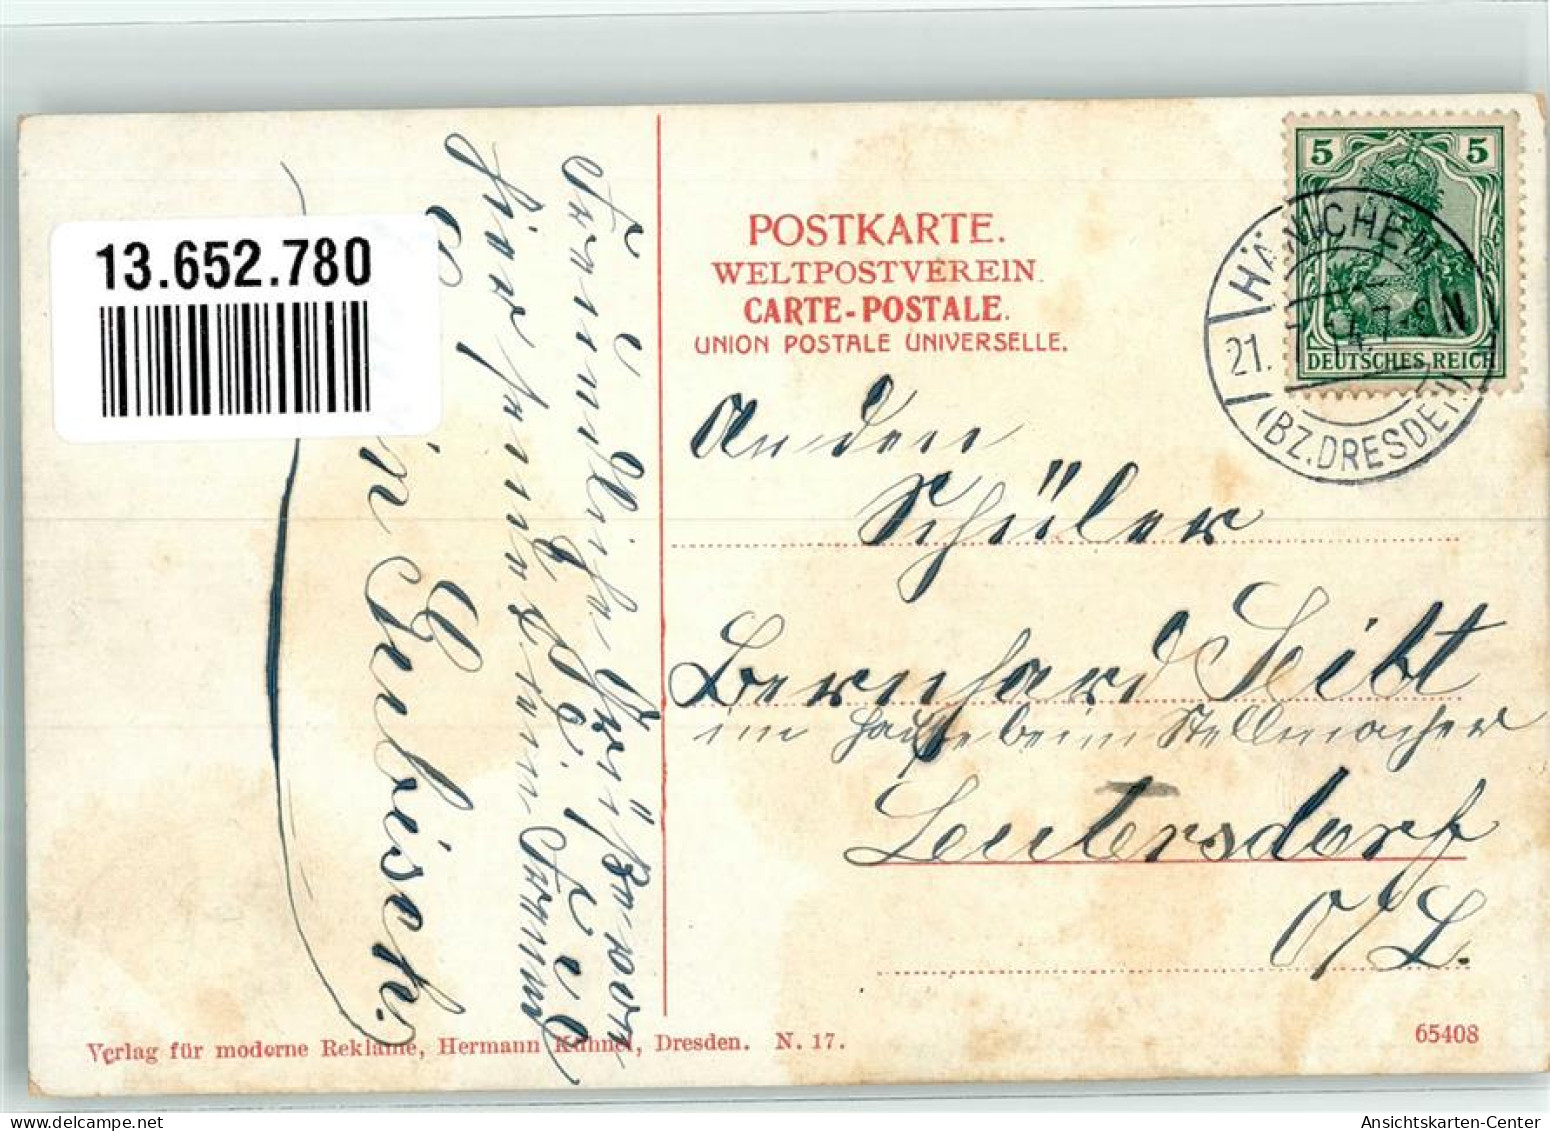 13.652.780
POSTKARTE.
WELTPOSTVEREIN.
CARTE-POSTALE.
UNION POSTALE UNIVERSELLE.
5 5
DEUTSCHES REICH
HÄNICHEN
21. 14. 7-8 N
(BZ. DRESDEN)
An den
Schüler
Bernhard Seibt
im Hause beim Stellmacher
Leutersdorf
O/L.
Freundliche Grüße von
hier sendet Freund
Gerbisch.
Verlag für moderne Reklame, Hermann Kühnel, Dresden. N. 17.
65408
delcampe.net
Ansichtskarten-Center